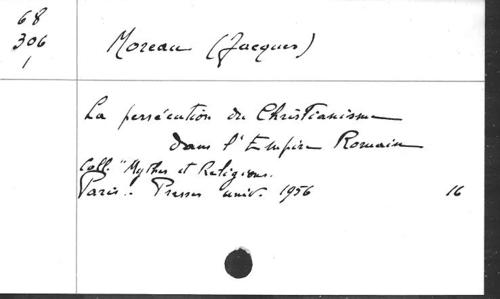 68
306
1
Moreau (Jacques)
La persécution du Christianisme
dans l'Empire Romain
Coll. "Mythes et Religions.
Paris.. Presses univ. 1956 16